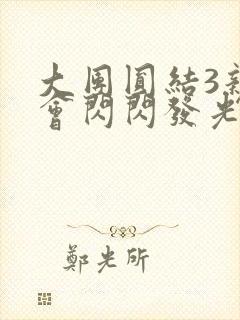 大團圓結3新
會閃閃發光
鄭光所